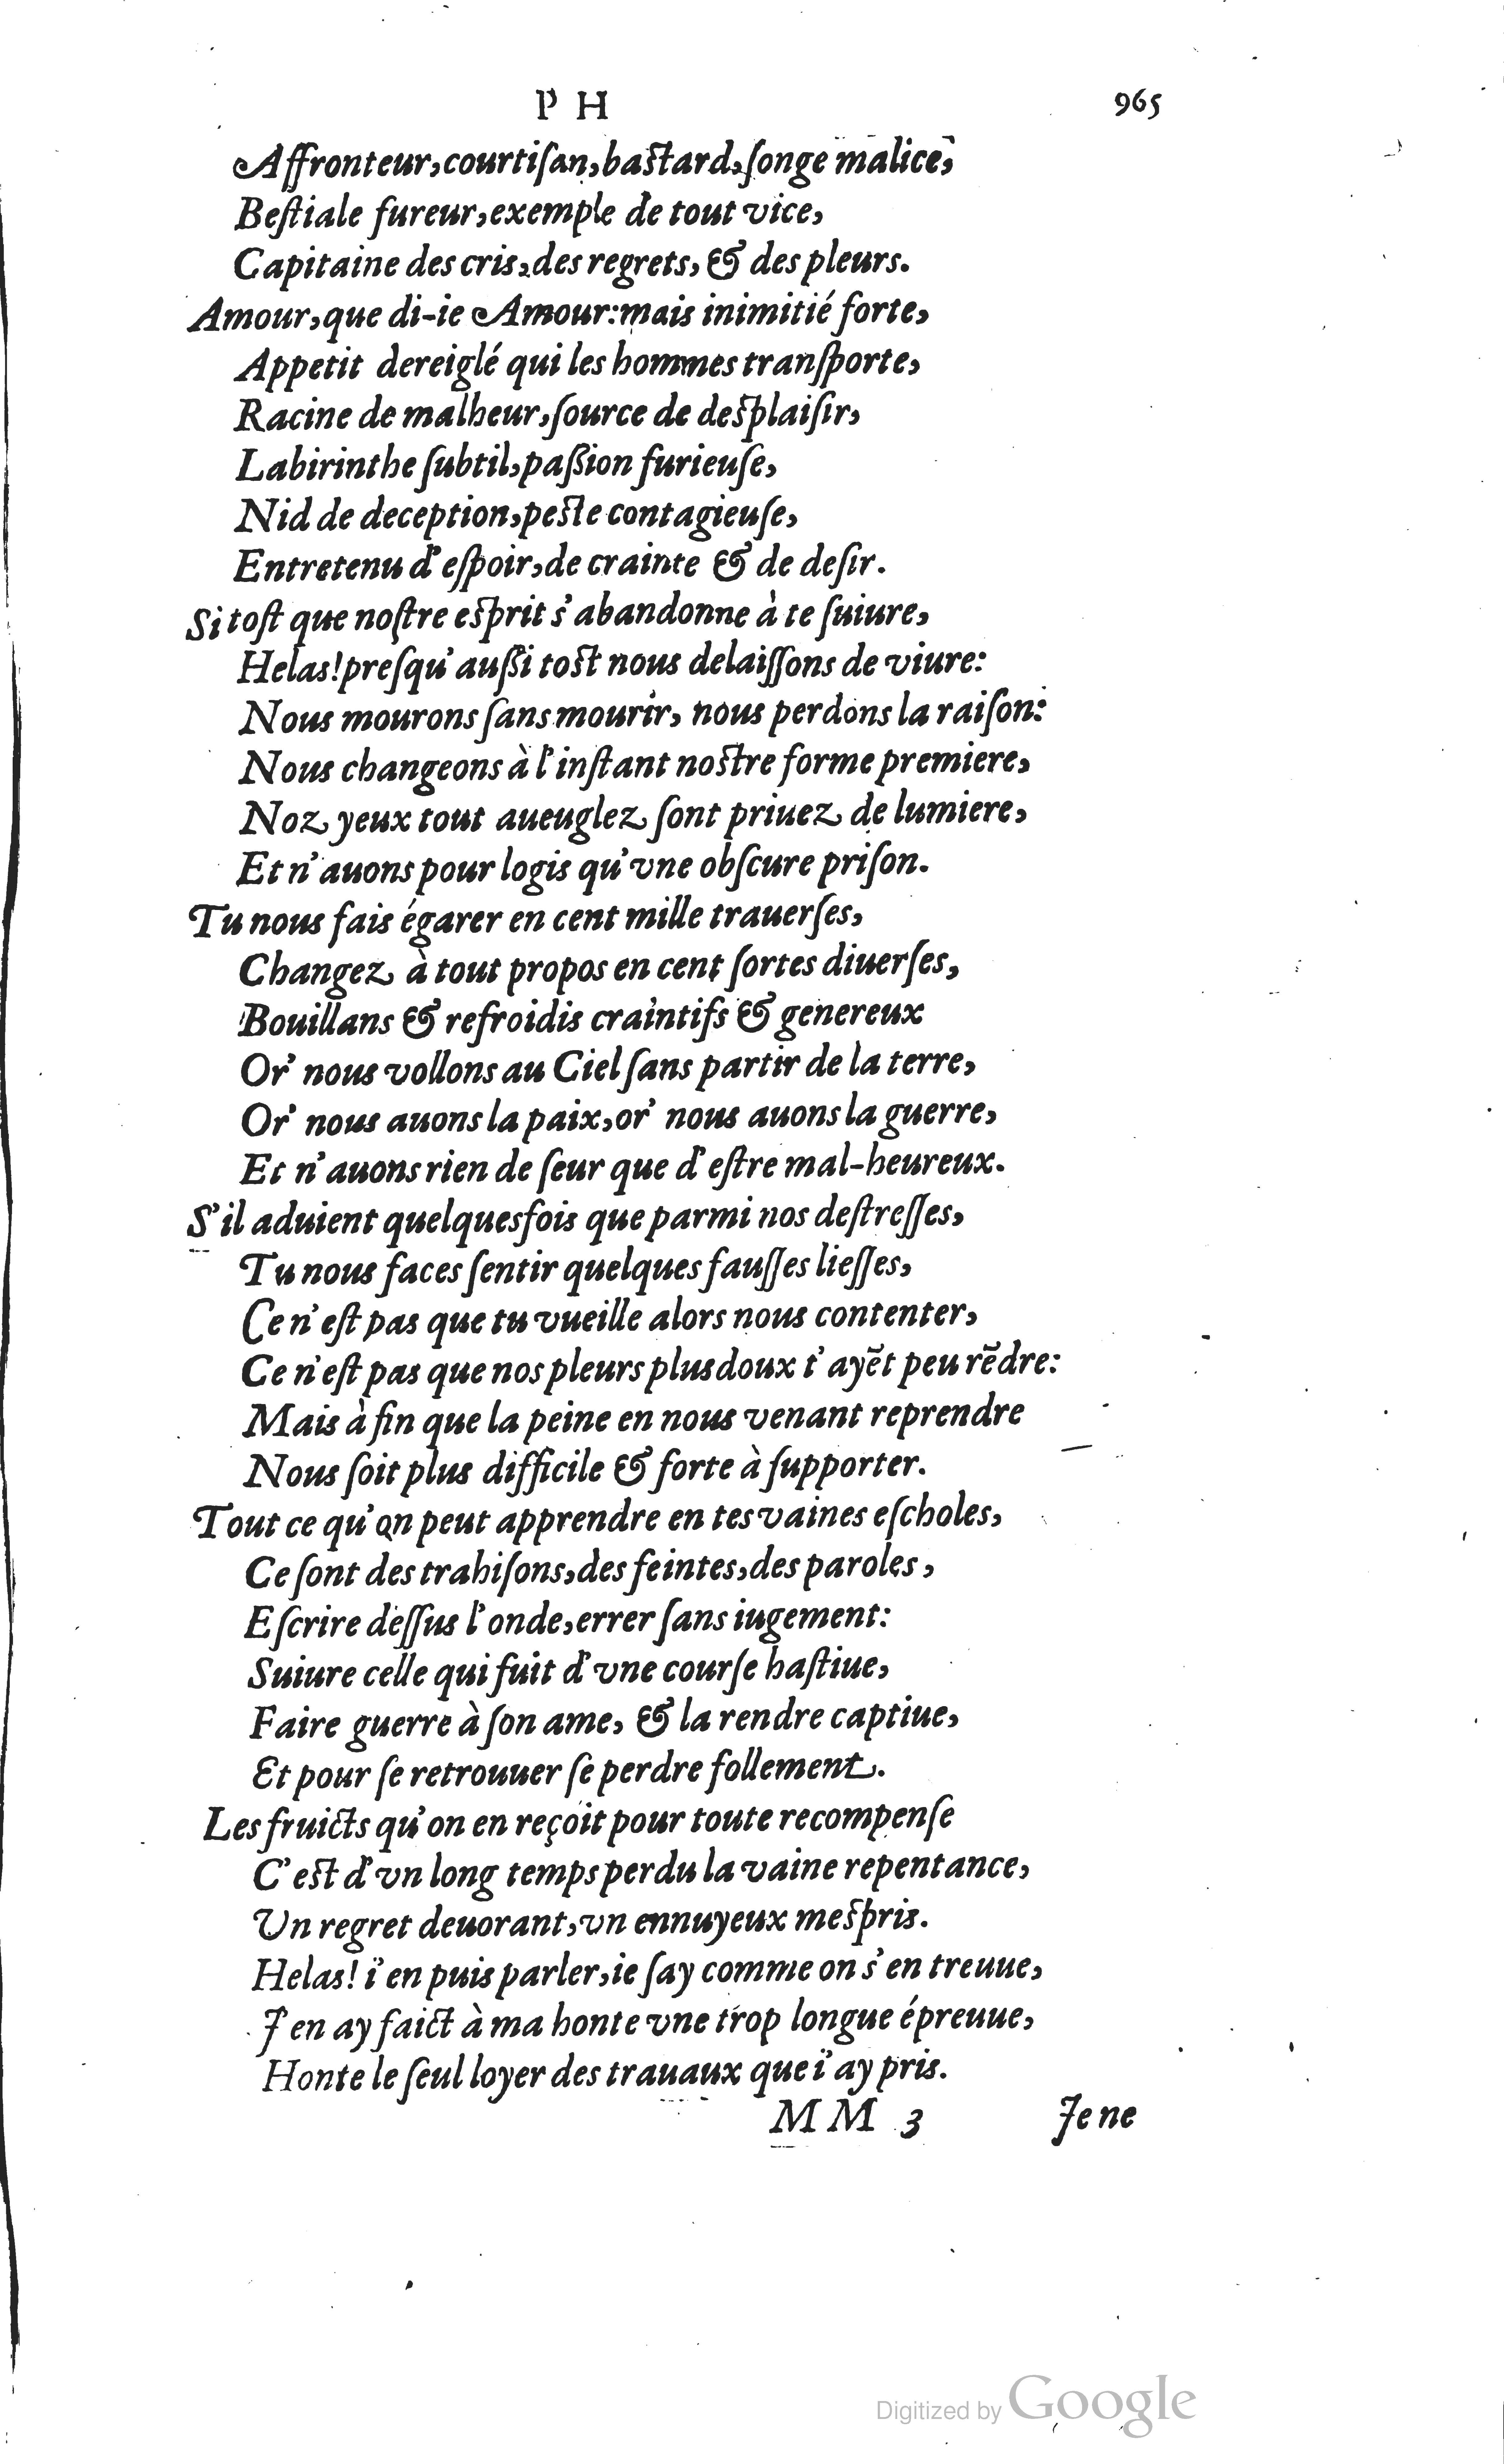 P H 965
Affronteur, courtiſan, baſtard, ſonge malice,
Beſtiale fureur, exemple de tout vice,
Capitaine des cris, des regrets, & des pleurs.
Amour, que di-ie Amour: mais inimitié forte,
Appetit dereiglé qui les hommes tranſporte,
Racine de malheur, ſource de deſplaiſir,
Labirinthe ſubtil, paßion furieuſe,
Nid de deception, peſte contagieuſe,
Entretenu d'eſpoir, de crainte & de deſir.
Si toſt que noſtre eſprit s'abandonne à te ſuiure,
Helas! preſqu'außi toſt nous delaiſſons de viure:
Nous mourons ſans mourir, nous perdons la raiſon:
Nous changeons à l'inſtant noſtre forme premiere,
Noz yeux tout aueuglez ſont priuez de lumiere,
Et n'auons pour logis qu'vne obſcure priſon.
Tu nous fais égarer en cent mille trauerſes,
Changez à tout propos en cent ſortes diuerſes,
Bouillans & refroidis craintifs & genereux
Or' nous vollons au Ciel ſans partir de la terre,
Or' nous auons la paix, or' nous auons la guerre,
Et n'auons rien de ſeur que d'eſtre mal-heureux.
S'il aduient quelquesfois que parmi nos deſtreſſes,
Tu nous faces ſentir quelques fauſſes lieſſes,
Ce n'eſt pas que tu vueille alors nous contenter,
Ce n'eſt pas que nos pleurs plus doux t'ayẽt peu rẽdre:
Mais à fin que la peine en nous venant reprendre
Nous ſoit plus difficile & forte à ſupporter.
Tout ce qu'on peut apprendre en tes vaines eſcholes,
Ce ſont des trahiſons, des feintes, des paroles,
Eſcrire deſſus l'onde, errer ſans iugement:
Suiure celle qui fuit d'vne courſe haſtiue,
Faire guerre à ſon ame, & la rendre captiue,
Et pour ſe retrouuer ſe perdre follement.
Les fruicts qu'on en reçoit pour toute recompenſe
C'eſt d'vn long temps perdu la vaine repentance,
Un regret deuorant, vn ennuyeux meſpris.
Helas! i'en puis parler, ie ſay comme on s'en treuue,
J'en ay faict à ma honte vne trop longue épreuue,
Honte le ſeul loyer des trauaux que i'ay pris.
MM 3 Je ne
Digitized by Google